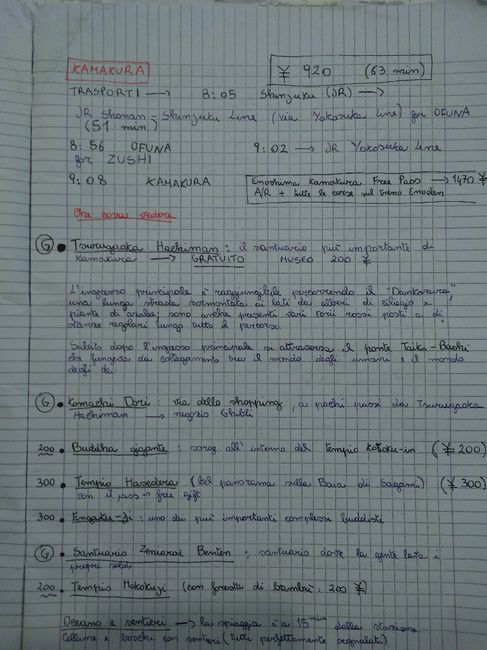 KAMAKURA
¥ 920 (63 min)
TRASPORTI → 8:05 Shinjuku (JR) →
JR Shonan-Shinjuku Line (via Yokosuka Line) for OFUNA
(51 min)
8:56 OFUNA 9:02 → JR Yokosuka Line
for ZUSHI
9:08 KAMAKURA
Enoshima Kamakura Free Pass → 1470 ¥
A/R + tutte le corse sul treno Enoden
Che cosa vedere
G • Tsurugaoka Hachiman : il santuario più importante di
Kamakura → GRATUITO MUSEO 200 ¥
L'ingresso principale è raggiungibile percorrendo il "Dankazura",
una lunga strada sormontata ai lati da alberi di ciliegio e
piante di azalee; sono anche presenti vari torii rossi posti a di
stanze regolari lungo tutto il percorso.
Subito dopo l'ingresso principale si attraversa il ponte Taiko-Bashi
che fungeva da collegamento tra il mondo degli umani e il mondo
degli dei.
G • Komachi Dori : via dello shopping, a pochi passi da Tsurugaoka
Hachiman → negozio Ghibli
200 • Buddha gigante : sorge all'interno del tempio Kotoku-in (¥ 200)
300 • Tempio Hasedera (bel panorama sulla Baia di Sagami) (¥ 300)
con il pass → free gift
300 • Engaku-ji : uno dei più importanti complessi buddisti
G • Santuario Zeniarai Benten : santuario dove la gente lava i
propri soldi
200 • Tempio Hokokuji (con foresta di bambù : 200 ¥)
Oceano e sentieri → la spiaggia è a 15 min dalla stazione
Colline e boschi con sentieri (tutti perfettamente segnalati).